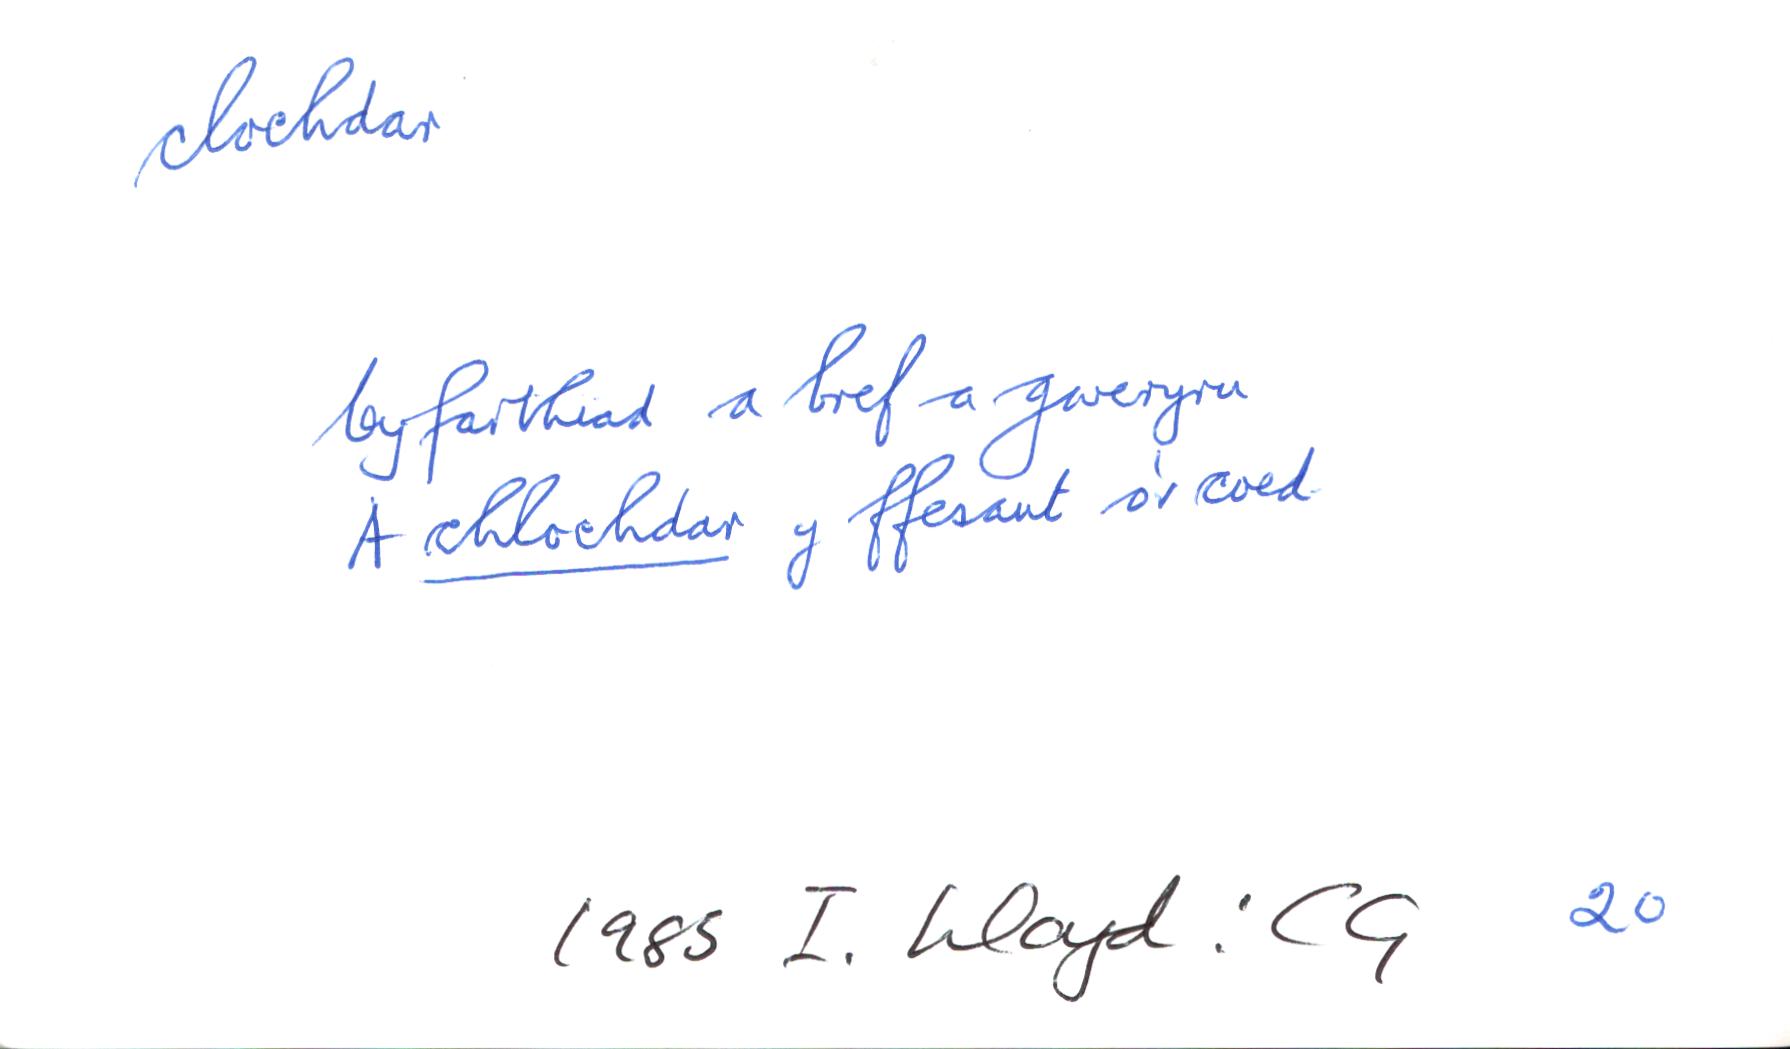 clochdar
Cyfarthiad a bref a gweryru
A chlochdar y ffesant o'r coed
1985 I. Lloyd : CG 20